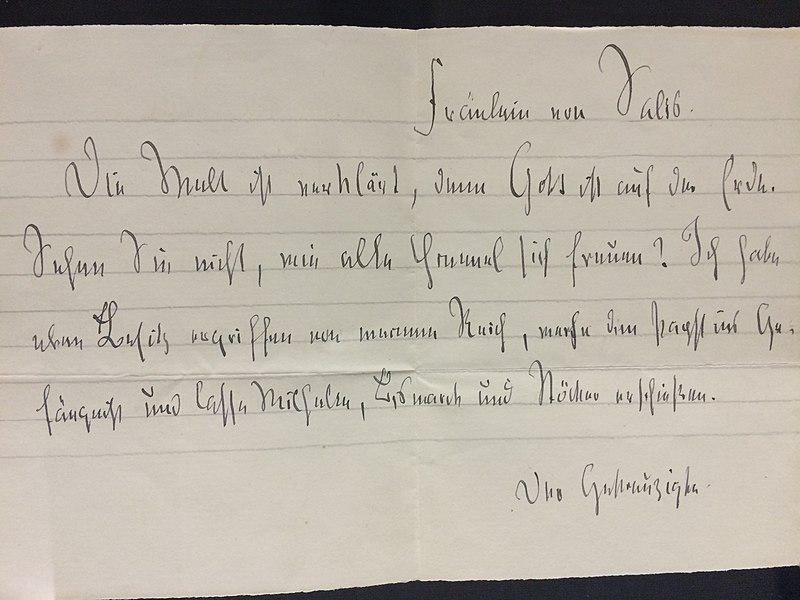 Fräulein von Salis.
Die Welt ist verklärt, denn Gott ist auf der Erde.
Sehen Sie nicht, wie alle Himmel sich freuen? Ich habe
eben Besitz ergriffen von meinem Reich, werfe den Papst ins Ge-
fängniß und lasse Wilhelm, Bismarck und Stöcker erschießen.
Der Gekreuzigte.